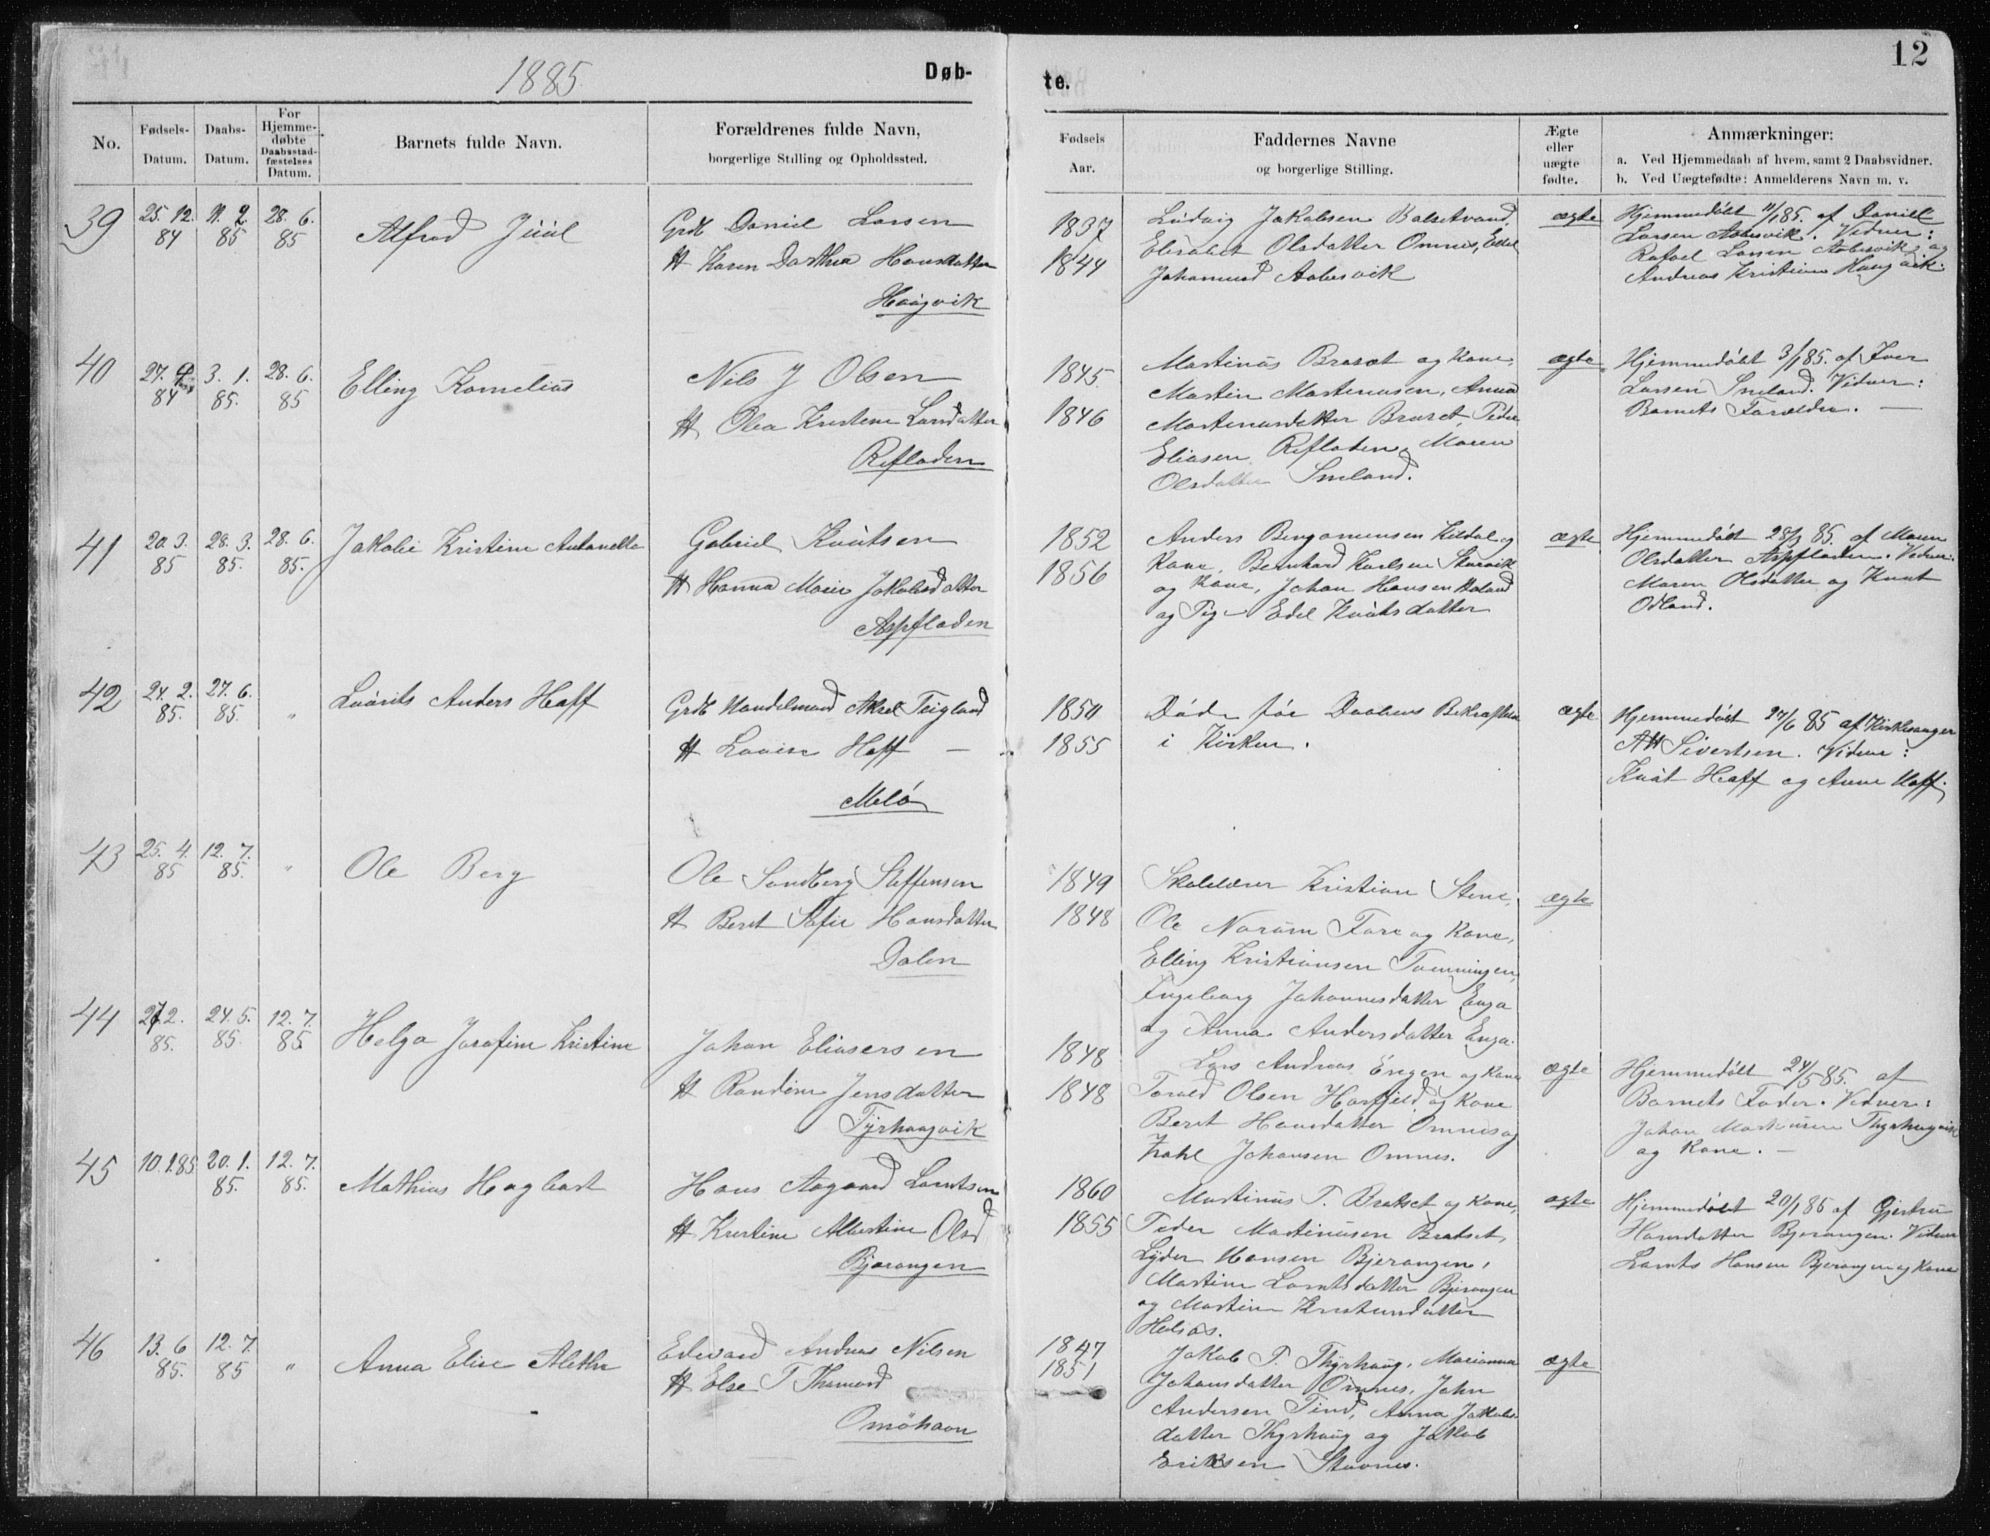 1885
Døb-
te.
12
No.
Fødsels-
Datum.
Daabs-
Datum.
For
Hjemme-
døbte
Daabsstad-
fæstelses
Datum.
Barnets fulde Navn.
Forældrenes fulde Navn,
borgerlige Stilling og Opholdssted.
Fødsels
Aar.
Faddernes Navne
og borgerlige Stilling.
Ægte
eller
uægte
fødte.
Anmærkninger:
a. Ved Hjemmedaab af hvem, samt 2 Daabsvidner.
b. Ved Uægtefødte: Anmelderens Navn m. v.
39
25. 12.
84
11. 2.
85
28. 6.
85
Alfred Júúl
Grdb Daniel Larsen
H Karen Dorthea Hansdatter
Haúgvik
1837
1844
Lúdvig Jakobsen
Elisabet Olsdatter Omnes, Edel
Aabesvik
ægte
Hjemmedøbt 11/1 85. af Daniel
Larsen Aabesvik. Vidner:
Rafael Larsen Aabesvik og
Andreas Kristian Haugvik.
40
84
3. 1.
85.
28. 6.
85
Elling Kornelius
Nils J Olsen
H Olea Kristine Larsdatter
Refladen
1845
1846
Martinús Braset og Kone,
Martin Martinusen, Anna
Martinusdatter Braset, Peder
Eliasen Refladen, Maren
Olsdatter Sneland.
ægte
Hjemmedøbt 3/1 85. af Iver
Larsen Sneland. Vidner:
Barnets Forældre. —
41
20. 3.
85
28. 3.
85.
28. 6.
85.
Jakobie Kristine Antonette
Gabriel Knútsen
H Hanna Marie Jakobsdatter
Aspfladen
1852
1856
Anders Bengamensen Kildal og
Kone, Bernhard Karlsen
og Kone, Johan Hansen
og Pige Edel Knútsdatter
ægte
Hjemmedøbt 28/3 85. af Maren
Olsdatter Aspfladen. Vidner:
Maren Olsdatter og Knut
Odland.
42
24. 2.
85.
27. 6.
85.
"
Laúrits Anders Haff
Grdb Handelsmand Aksel Teigland
H Lovise Haff —
Melö
1850
1855
Döde för Daabens Bekræftelse
i Kirken.
ægte
Hjemmedøbt 27/6 85 af Kirkesanger
Sivertsen. Vidner:
Knút Haff og Anne Haff.
43
25. 4.
85
12. 7.
85.
"
Ole Berg
Ole Sandberg Steffensen
H Beret Sofie Hansdatter
Dalen
1849
1848
Skolelærer Kristian Stene,
Ole Norúm Fore og Kone,
Elling Kristiansen
Ingeborg Johannesdatter Enga
og Anna Andersdatter Enga.
ægte
44
85.
24. 5.
85.
12. 7.
85
Helga Josefine Kristine
Johan Eliasersen
H Randine Jensdatter
Tyrhaugvik
1848
1848
Lars Andreas og Kone
Torald Olsen og Kone
Beret Hansdatter Omnes og
Johansen Omnes.
ægte
Hjemmedøbt 24/5 85. af
Barnets Fader. Vidner:
Johan Thyrhaugvik
og Kone. —
45
10. 1 85
20. 1.
85.
12. 7.
85.
Mathias Hagbart
Hans Aagaard Lorntsen
H Kristine Albertine Olsd
Bjerangen
1860
1855
Martinús P. Bratset og Kone,
Peder Martinúsen Bratset,
Lyder Hansen Bjerangen,
Martine Lorntsdatter Bjerangen
og Martine
ægte
Hjemmedøbt 20/1 85 af Gjertru
Hansdatter Bjerangen. Vidner
Lornts Hansen Bjerangen og Kone
46
13. 6
85.
12. 7.
85
"
Anna Elise Alethe
Edevard Andreas Nilsen
H Else T
Omöhavn
1847
1851
Jakob P. Thyrhaug, Marianna
Johansdatter Omnes, John
Andersen Tind, Anna Jakobs-
datter Thyrhaug og Jakob
Eriksen Stavnes.
ægte